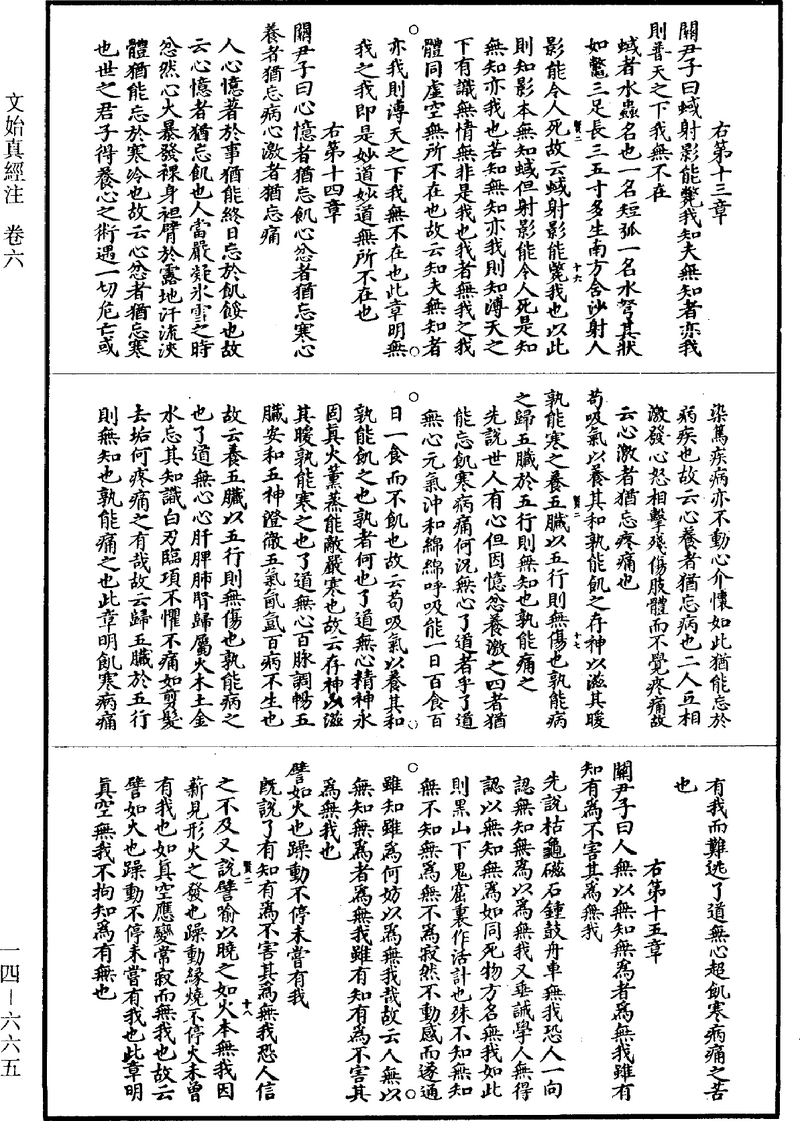 文始真經注　卷六
一四—六六五
右第十三章
關尹子曰蜮射影能斃我知夫無知者亦我
則普天之下我無不在
蜮者水蟲名也一名短狐一名水弩其狀
如鱉三足長三五寸多生南方含沙射人
影能令人死故云蜮射影能斃我也以此
則知影本無知蜮但射影能令人死是知
無知亦我也若知無知亦我則知溥天之
下有識無情無非是我也我者無我之我
體同虛空無所不在也故云知夫無知者
亦我則溥天之下我無不在也此章明無
我之我即是妙道妙道無所不在也
右第十四章
關尹子曰心憶者猶忘飢心忿者猶忘寒心
養者猶忘病心激者猶忘痛
人心憶著於事猶能終日忘於飢餒也故
云心憶者猶忘飢也人當嚴凝氷雪之時
忿然心大暴發裸身袒臂於露地汗流浹
體猶能忘於寒冷也故云心忿者猶忘寒
也世之君子得養心之術遇一切危亡或
染篤疾病亦不動心介懷如此猶能忘於
病疾也故云心養者猶忘病也二人互相
激發心怒相擊殘傷肢體而不覺疼痛故
云心激者猶忘疼痛也
苟吸氣以養其和孰能飢之存神以滋其暖
孰能寒之養五臟以五行則無傷也孰能病
之歸五臟於五行則無知也孰能痛之
先說世人有心但因憶忿養激之四者猶
能忘飢寒病痛何況無心了道者乎了道
無心元氣沖和綿綿呼吸能一日百食百
日一食而不飢也故云苟吸氣以養其和
孰能飢之也孰者何也了道無心精神永
固真火薰蒸能敵嚴寒也故云存神以滋
其暖孰能寒之也了道無心百脉調暢五
臟安和五神澄徹五氣氤氳百病不生也
故云養五臟以五行則無傷也孰能病之
也了道無心心肝脾肺腎歸屬火木土金
水忘其知識白刃臨項不懼不痛如剪髮
去垢何疼痛之有哉故云歸五臟於五行
則無知也孰能痛之也此章明飢寒病痛
有我而難逃了道無心超飢寒病痛之苦
也
右第十五章
關尹子曰人無以無知無為者為無我雖有
知有為不害其為無我
先說枯龜磁石鍾鼓舟車無我恐人一向
認無知無為以為無我又垂誡學人無得
認以無知無為如同死物方名無我如此
則黑山下鬼窟裏作活計也殊不知無知
無不知無為無不為寂然不動感而遂通
雖知雖為何妨以為無我哉故云人無以
無知無為者為無我雖有知有為不害其
為無我也
譬如火也躁動不停未嘗有我
既說了有知有為不害其為無我恐人信
之不及又說譬喻以曉之如火本無我因
薪見形火之發也躁動緣燒不停火未曾
有我也如真空應變常寂而無我也故云
譬如火也躁動不停未嘗有我也此章明
真空無我不拘知為有無也